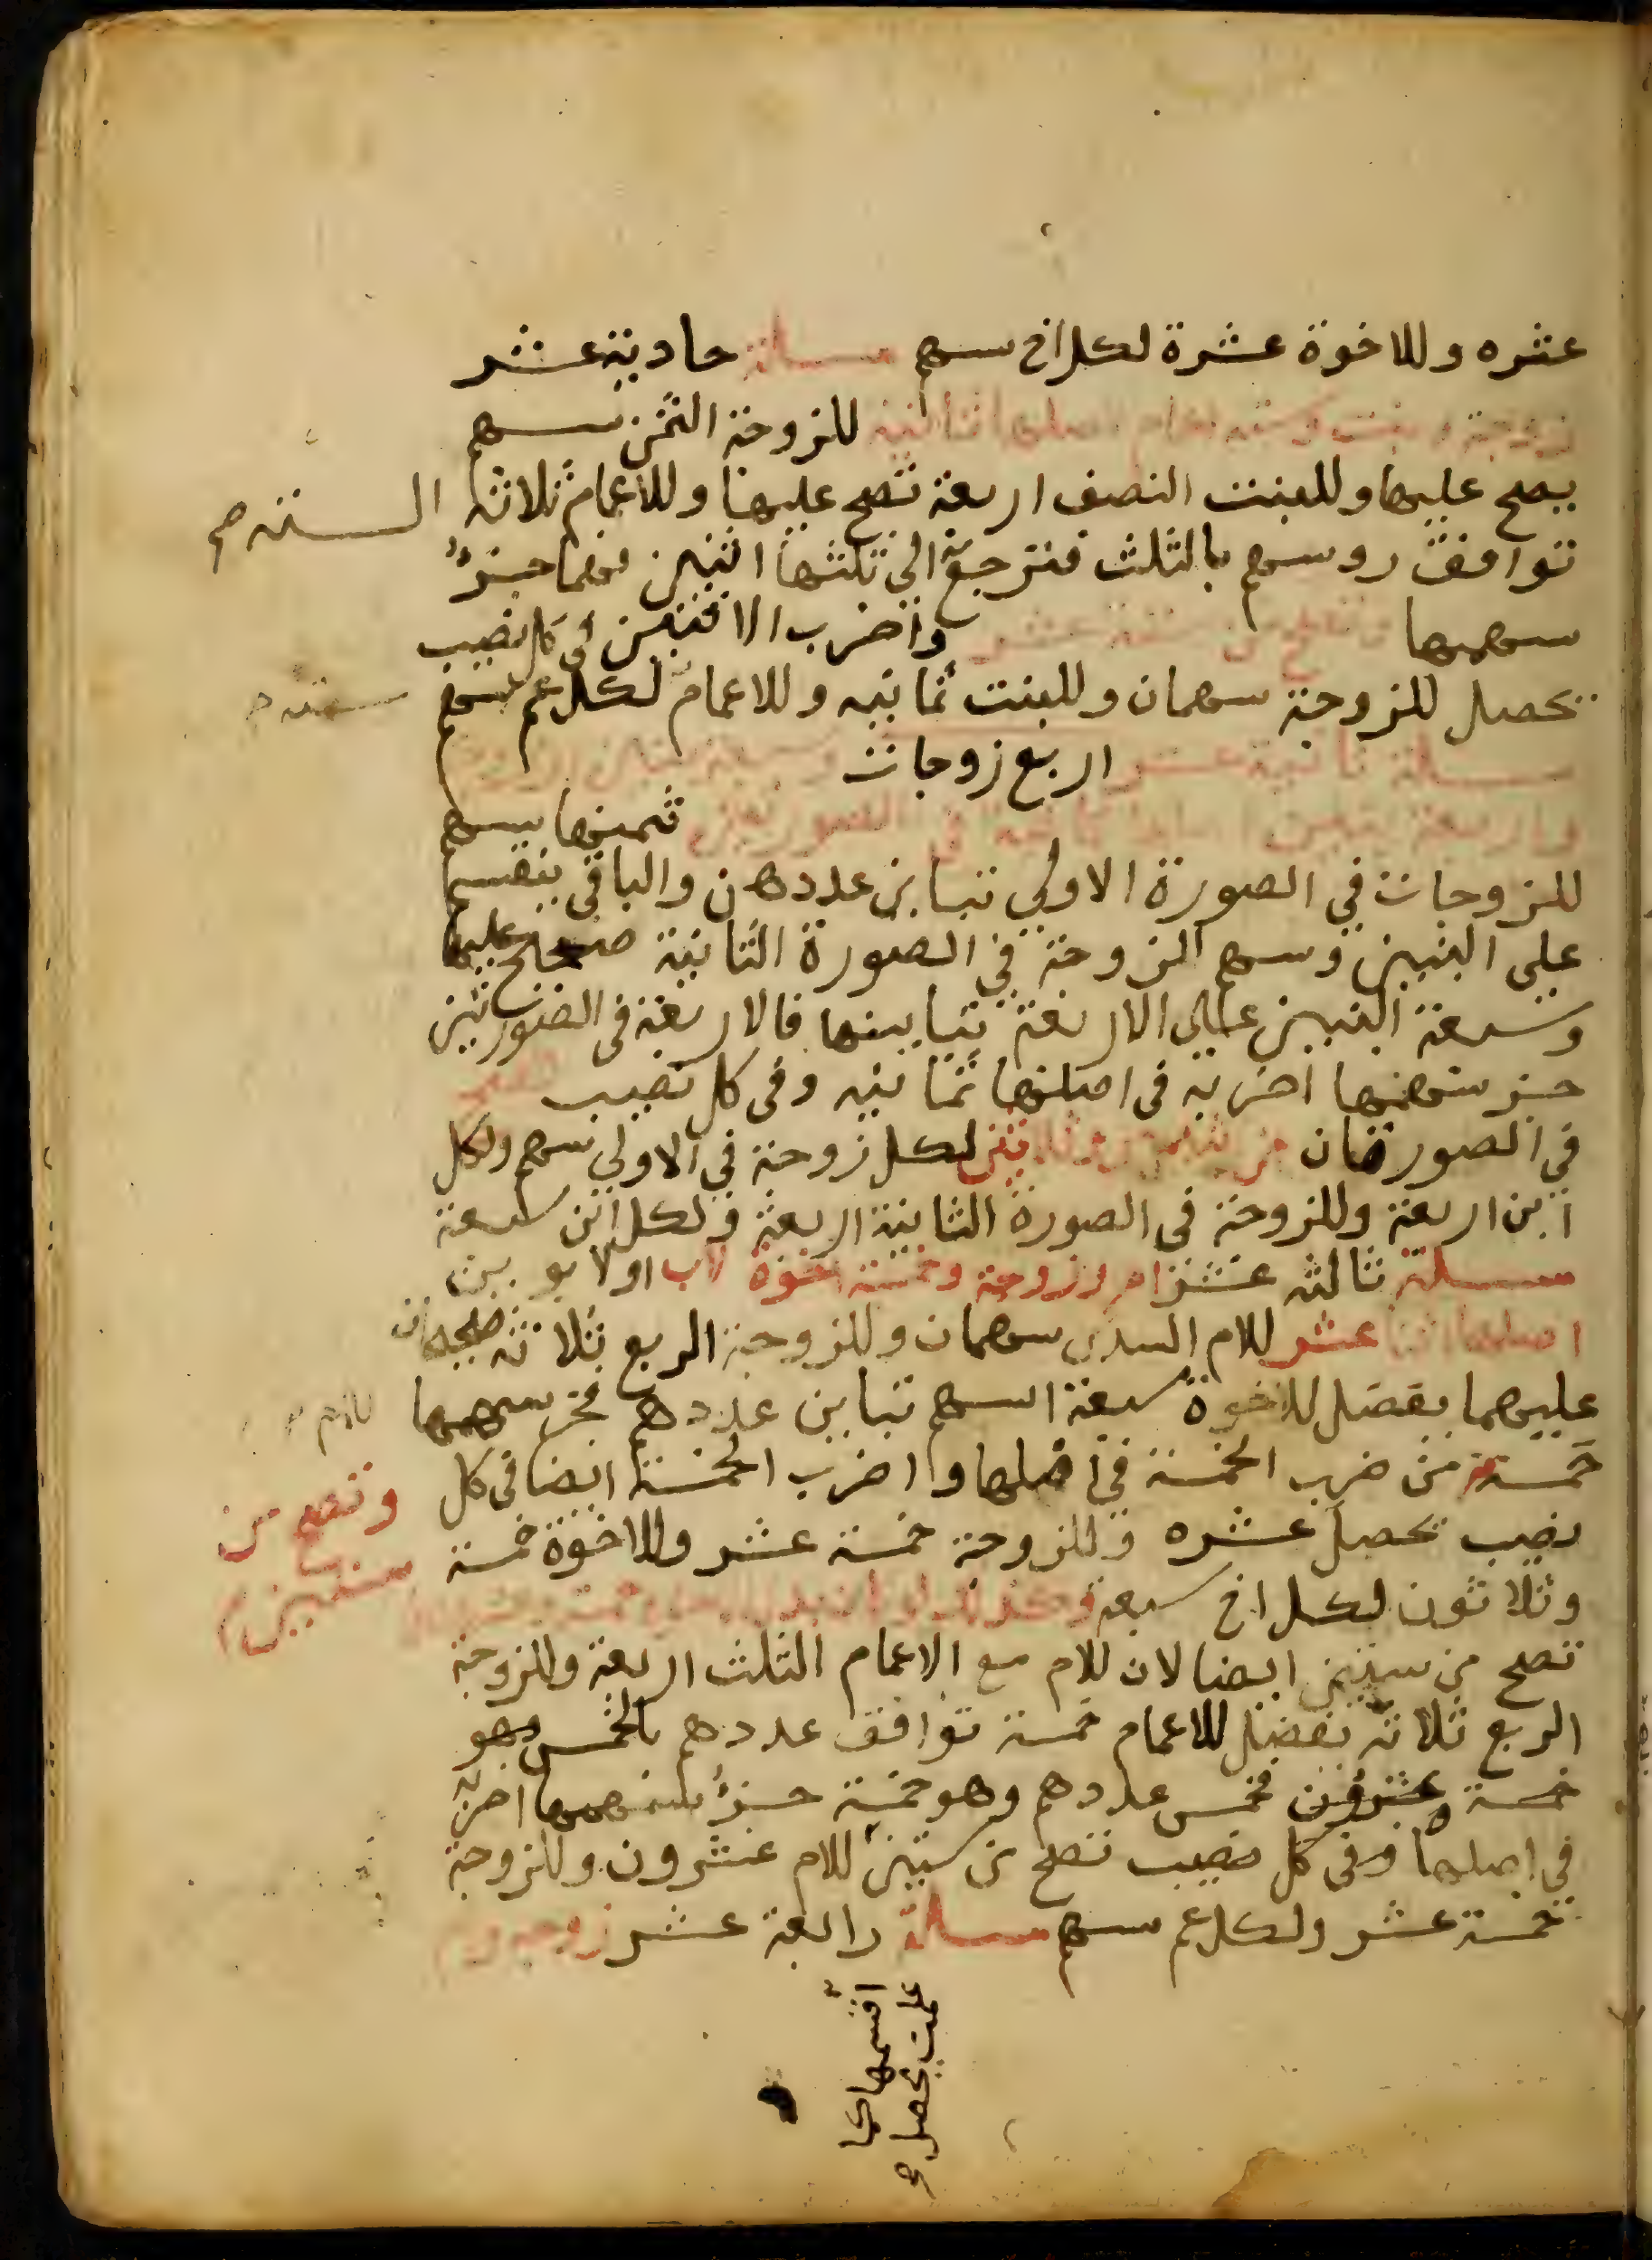 عشره وللاخوة عشرة لكل اخ سهم مسلة حادية عشر
زوجة وبنت وستة اعمام اصلها ثمانية للزوجة الثمن سهم
يصح عليها وللبنت النصف اربعة تصح عليها وللاعمام ثلاثة
الستة صح
توافق روسهم بالثلث فترجع الي ثلثها اثنين فهما جزؤ
سهمها وتصح من ستة عشر واضرب الاثنين في كل نصيب
يحصل للزوجة سهمان وللبنت ثمانيه وللاعمام لكل عم سهم
ستة
مسلة ثانية عشر اربع زوجات
ثمنها سهم
للزوجات في الصورة الاولي تباين عددهن والباقي ينقسم
علي البنين وسهم الزوجة في الصورة الثانية صحيح عليها
وسبعة البنين علي الاربعة تباينها فالاربعة في الصورتين
جزؤ سهمها اضربه في اصلها ثمانيه وفي كل نصيب
في الصورتان من اثنين وثلاثين لكل زوجة في الاولي سهم ولكل
ابن اربعة وللزوجة في الصورة الثانية اربعة ولكل ابن سبعة
مسلة ثالثه عشر ام وزوجة وخمسة اخوة لاب او لابوين
اصلها اثنا عشر للام السدس سهمان وللزوجة الربع ثلاثة صحيحان
عليهما يفضل للاخوة سبعة اسهم تباين عددهم فجز سهمها
للام
خمسة من ضرب الخمسة في اصلها واضرب الخمسة ايضا في كل
وتصح من
ستين
نصيب يحصل عشره وللزوجة خمسة عشر وللاخوة خمسة
وثلاثون لكل اخ سبعة
تصح من ستين ايضا لان للام مع الاعمام الثلث اربعة وللزوجة
الربع ثلاثة يفضل للاعمام خمسة توافق عددهم بالخمس وهو
خمسة وعشرون فخمس عددهم وهو خمسة جزؤ سهمها اضربه
في اصلها وفي كل نصيب تصح من ستين للام عشرون وللزوجة
خمسة عشر ولكل عم سهم مسلة رابعة عشر زوجة
اقسمها كما
علمت يحصل